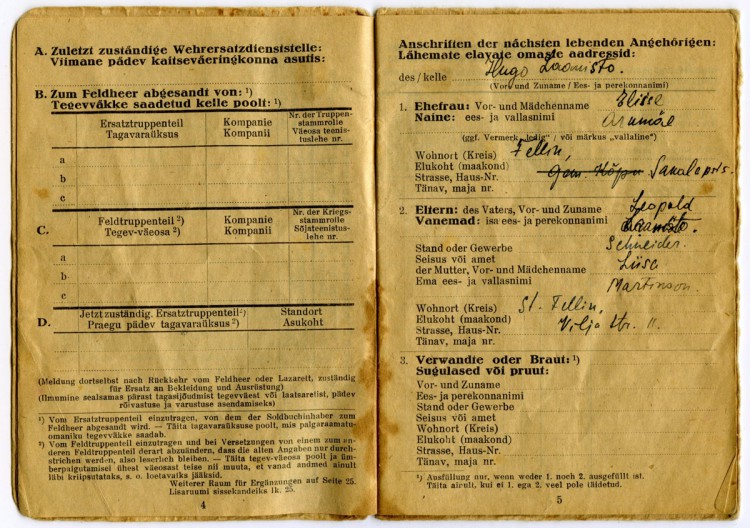 A. Zuletzt zuständige Wehrersatzdienststelle:
Viimane pädev kaitseväeringkonna asutis:
B. Zum Feldheer abgesandt von: ¹)
Tegevväkke saadetud kelle poolt: ¹)
Ersatztruppenteil
Tagavaraüksus
Kompanie
Kompanii
Nr. der Truppen-
stammrolle
Väeosa teenis-
tuslehe nr.
a
b
c
C.
Feldtruppenteil ²)
Tegev-väeosa ²)
Kompanie
Kompanii
Nr. der Kriegs-
stammrolle
Sõjateenistus-
lehe nr.
a
b
c
D.
Jetzt zuständig. Ersatztruppenteil²)
Praegu pädev tagavaraüksus²)
Standort
Asukoht
(Meldung dortselbst nach Rückkehr vom Feldheer oder Lazarett, zuständig
für Ersatz an Bekleidung und Ausrüstung)
(Ilmumine sealsamas pärast tagasijõudmist tegevväest või laatsaretist, pädev
rõivastuse ja varustuse asendamiseks)
¹) Vom Ersatztruppenteil einzutragen, von dem der Soldbuchinhaber zum
Feldheer abgesandt wird. — Täita tagavaraüksuse poolt, mis palgaraamatu-
omaniku tegevväkke saadab.
²) Vom Feldtruppenteil einzutragen und bei Versetzungen von einem zum an-
deren Feldtruppenteil derart abzuändern, dass die alten Angaben nur durch-
strichen werden, also leserlich bleiben. — Täita tegev-väeosa poolt ja üm-
berpaigutamisel ühest väeosast teise nii muuta, et vanad andmed ainult
läbi kriipsutataks, s. o. loetavaks jääksid.
Weiterer Raum für Ergänzungen auf Seite 25.
Lisaruumi sissekandeiks lk. 25.
4
Anschriften der nächsten lebenden Angehörigen:
Lähemate elavate omaste aadressid:
des / kelle Hugo Laanisto.
(Vor- und Zuname / Ees- ja perekonnanimi)
1. Ehefrau: Vor- und Mädchenname
Naine: ees- ja vallasnimi
(ggf. Vermerk „ledig" / või märkus „vallaline")
Wohnort (Kreis) Fellin,
Elukoht (maakond)
Strasse, Haus-Nr. Gem. Kõpu
Tänav, maja nr.
2. Eltern: des Vaters, Vor- und Zuname Leopold
Vanemad: isa ees- ja perekonnanimi Laanisto.
Stand oder Gewerbe Schneider.
Seisus või amet
der Mutter, Vor- und Mädchenname Liise
Ema ees- ja vallasnimi Martinson.
Wohnort (Kreis) St. Fellin,
Elukoht (maakond)
Strasse, Haus-Nr. Vilja Str. 11.
Tänav, maja nr.
3. Verwandte oder Braut: ¹)
Sugulased või pruut:
Vor- und Zuname
Ees- ja perekonnanimi
Stand oder Gewerbe
Seisus või amet
Wohnort (Kreis)
Elukoht (maakond)
Strasse, Haus-Nr.
Tänav, maja nr.
¹) Ausfüllung nur, wenn weder 1. noch 2. ausgefüllt ist.
Täita ainult, kui ei 1. ega 2. veel pole täidetud.
5